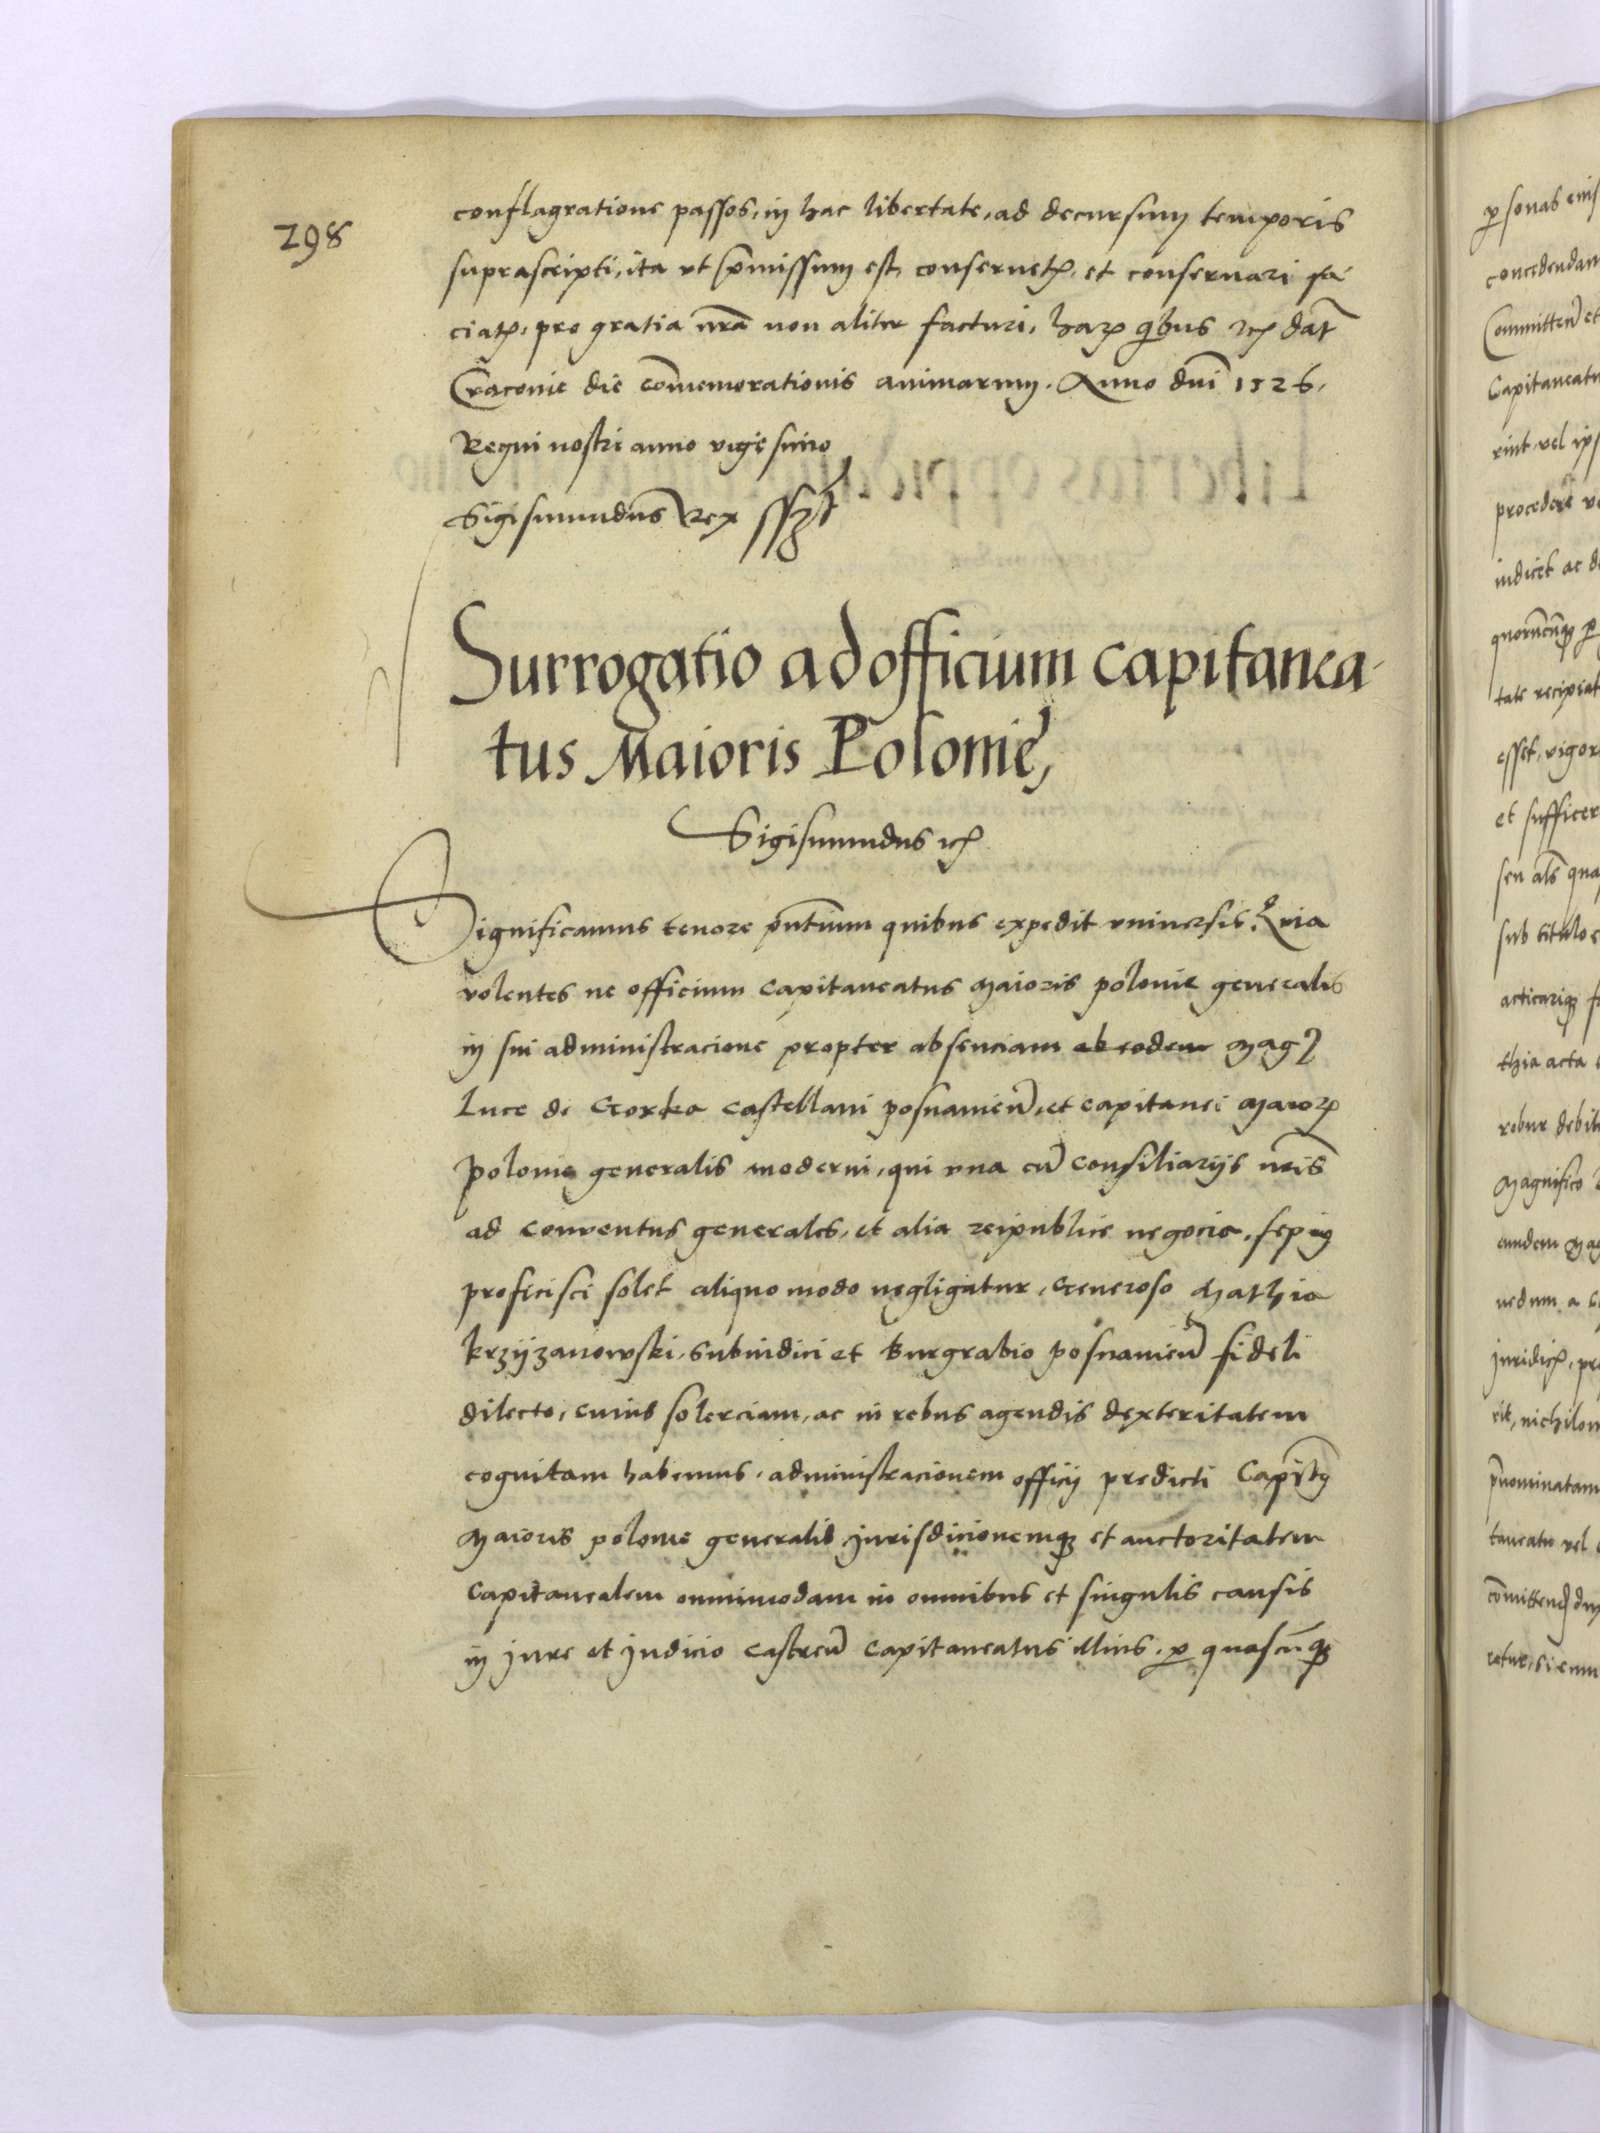 298
conflagratione passos, in hac libertate, ad decursum temporis
suprascripti, ita ut p̄missum est, conseruetꝭ, et conseruari fa
ciatꝭ, pro gratia nr̄a non aliter facturi, harꝝ q̄bus ꝛcꝭ dat̄
Cracouie die com̄emorationis animarum. Anno dn̄i 1526.
Regni nostri anno vigesimo
Sigismundus Rex sszt
Surrogatio ad officium capitanea-
tus Maioris Polonie,
Sigismundus ꝛcꝭ
Significamus tenore pn̄tium quibus expedit vniuersis. Quia
volentes ne officium capitaneatus Maioris polonie generalis
in sui administracione propter absenciam ab eodem Mag
Luce de Gorka castellani posnanien̄, et capitanei Maioꝝ
polonie generalis moderni, qui vna cū consiliarijs nr̄is
ad conuentus generales, et alia reipublice negocia, sepius
proficisci solet aliquo modo negligatur, Generoso Mathia
krzijzanowski, Subiudici et Burgrabio posnanien̄ fideli
dilecto, cuius solerciam, ac in rebus agendis dexteritatem
cognitam habemus, administracionem officij predicti Capit̄
Maioris polonie generalis Jurisdicionemqꝫ et auctoritatem
capitanealem omnimodam in omnibus et singulis causis
in Jure et Judicio castren̄ capitaneatus illius, ꝑ quascūqꝫ
ꝑsonas eius
concedendam
Committen̄ et
Capitaneatu
rint, vel ips
procedere
iudicet ac
quorūcūqꝫ ꝑ
tate recipiat
esset, vigor
et sufficer
seu als̄ qua
sub titulo
acticariqꝫ
thia acta
robur debit
Magnifico
eundem Mag
nedum a
rit, nichilom
p̄nominatam
taneatu vel
com̄itten